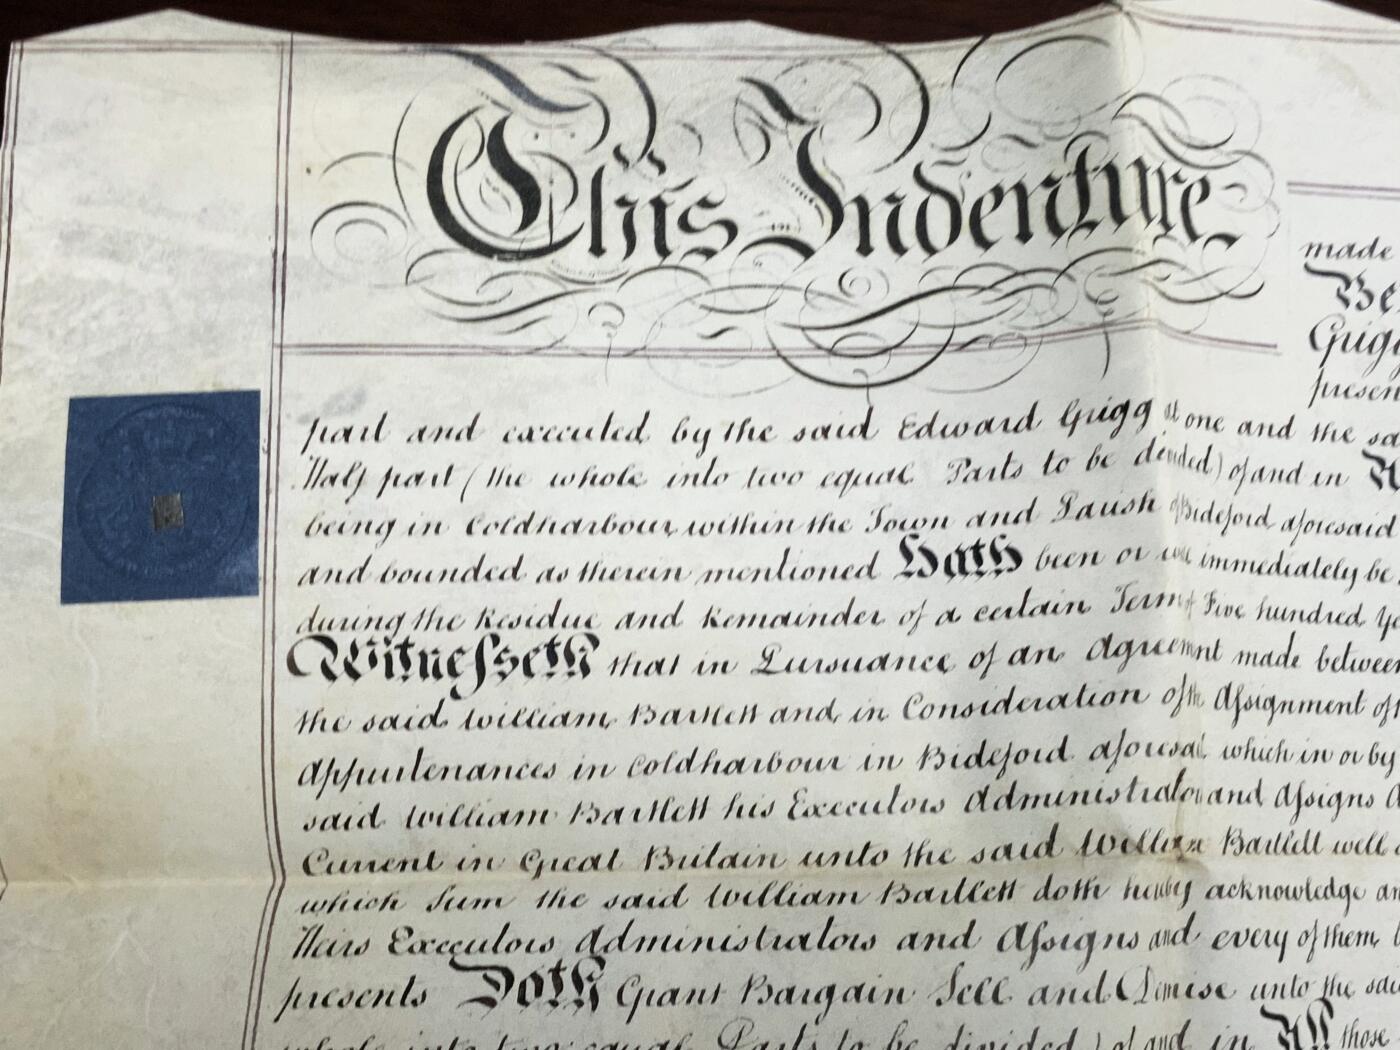 This Indenture
made
Grigg
part and executed by the said Edward Grigg at one and the
Half part (the whole into two equal Parts to be divided) of and in
being in Coldharbour within the Town and Parish of Bideford aforesaid
and bounded as therein mentioned Hath been or immediately
during the Residue and Remainder of a certain Term of Five hundred
Witneſseth that in Pursuance of an Agreement made between
the said William Bartlett and in Consideration of the Aſsignment of
Appurtenances in Coldharbour in Bideford aforesaid which in or by
said William Bartlett his Executors Administrators and Aſsigns
Current in Great Britain unto the said William Bartlett well
which Sum the said William Bartlett doth hereby acknowledge
Heirs Executors Administrators and Aſsigns and every of them
presents Doth Grant Bargain Sell and Demise unto the
whole into two equal Parts to be divided) of and in All those